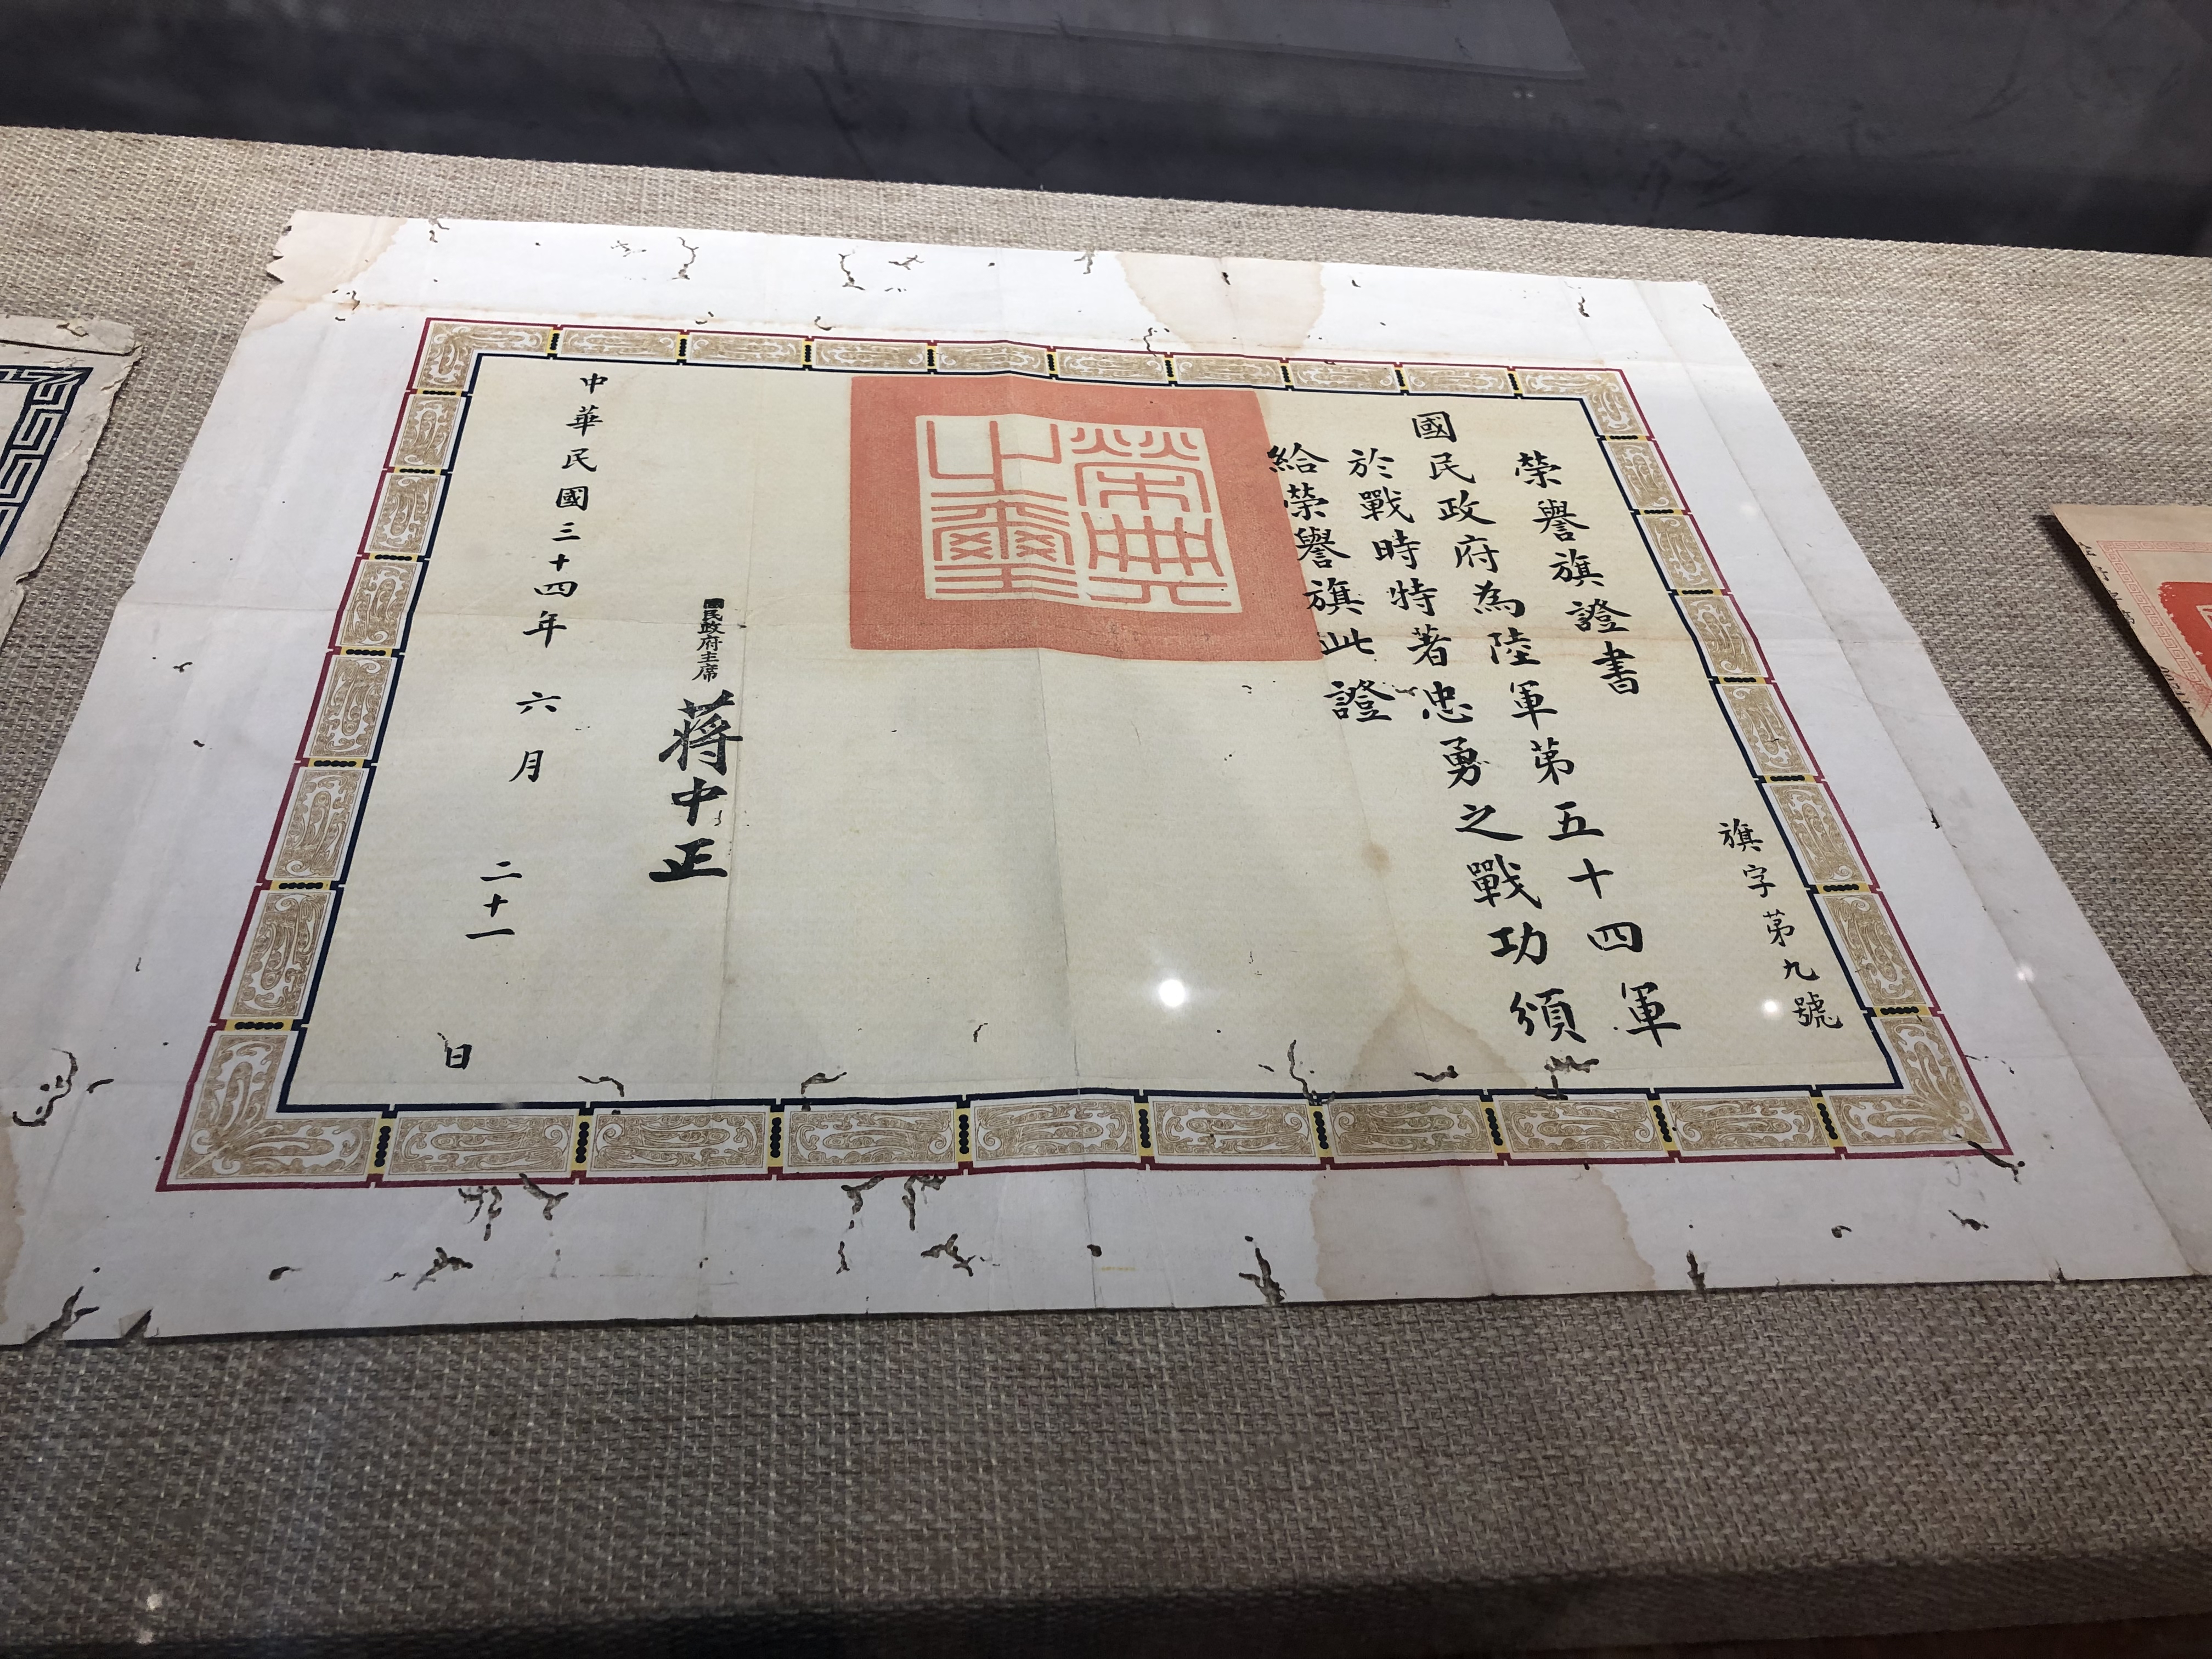 旗字第九號
榮譽旗證書
國民政府為陸軍第五十四軍
於戰時特著忠勇之戰功頒
給榮譽旗此證
榮典之璽
國民政府主席
蔣中正
中華民國三十四年六月二十一日